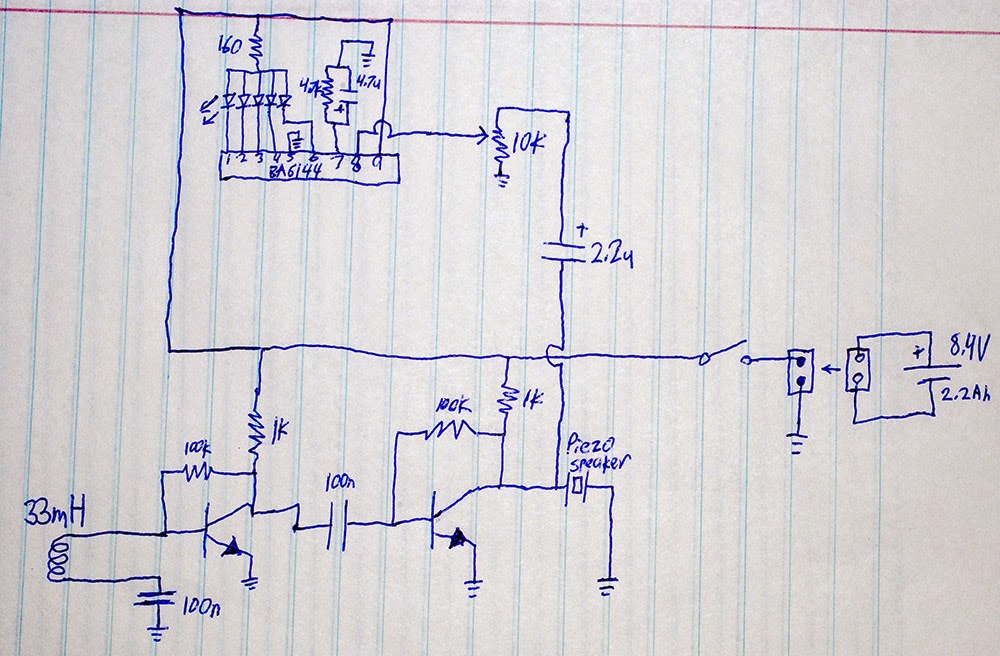 160
4.7k
4.7u
1 2 3 4 5 6 7 8 9
BA6144
10K
+
2.2u
+
8.4V
2.2Ah
1K
100k
1k
100k
Piezo
speaker
100n
33mH
100n